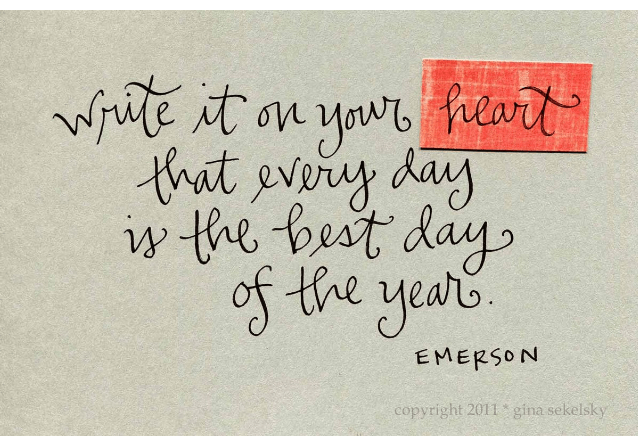 Write it on your heart
that every day
is the best day
of the year.
EMERSON
copyright 2011 * gina sekelsky